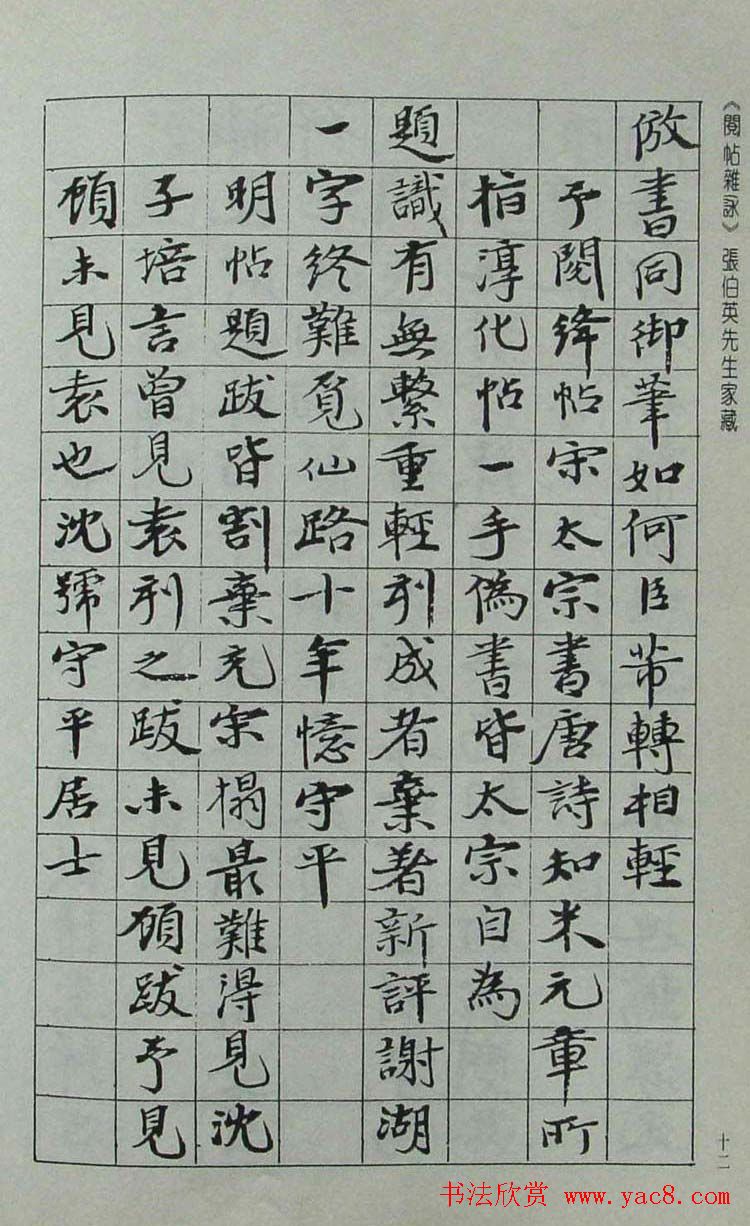 《閱帖雜詠》張伯英先生家藏
倣書同御筆如何臣芾轉相輕
予閱絳帖宋太宗書唐詩知米元章所
指淳化帖一手偽書皆太宗自為
題識有無繫重輕刊成者棄著新評謝湖
一字終難覓仙路十年憶守平
明帖題跋皆割棄充宋榻最難得見沈
子培言曾見袁刊之跋未見顧跋予見
顧未見袁也沈號守平居士
十二
书法欣赏 www.yac8.com